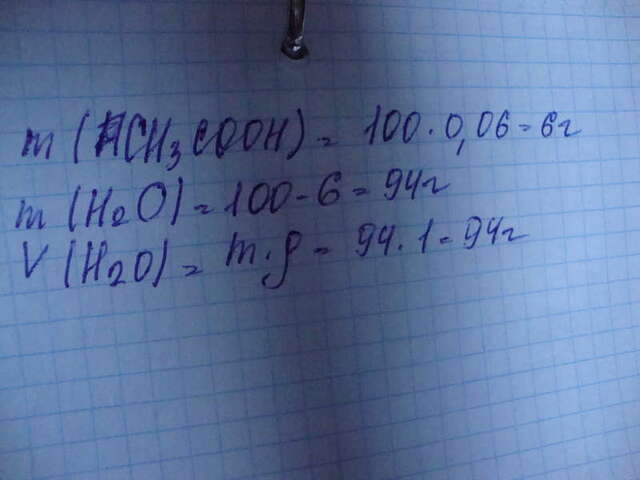 m (CH₃COOH) = 100 · 0,06 = 6г
m (H₂O) = 100 - 6 = 94г
V (H₂O) = m · ρ = 94 · 1 = 94г